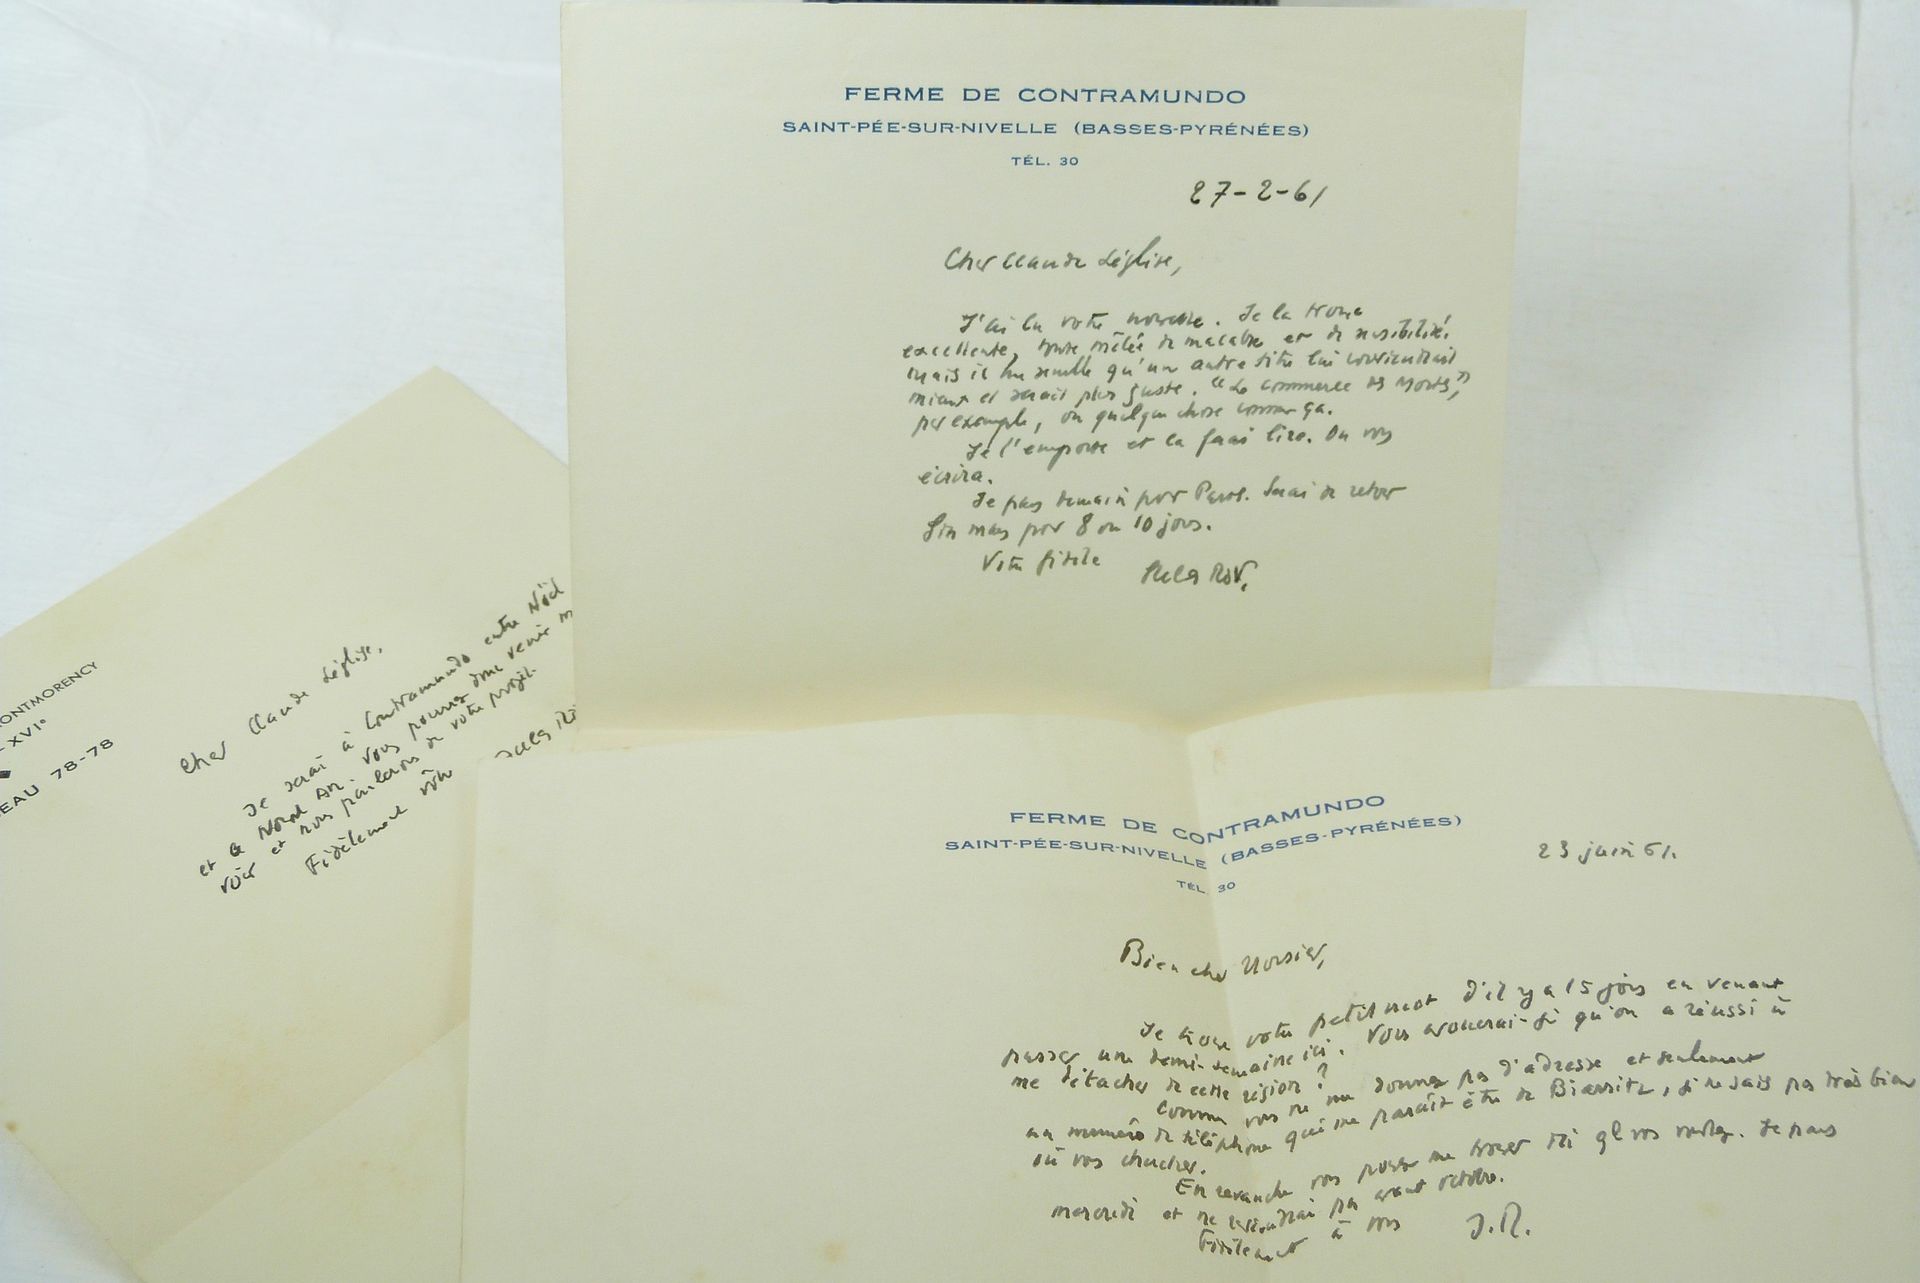 FERME DE CONTRAMUNDO
SAINT-PÉE-SUR-NIVELLE (BASSES-PYRÉNÉES)
TÉL. 30
27-2-61
Cher Claude Léglise,
J'ai lu votre nouvelle. Je la trouve
excellente, toute mêlée de macabre et de sensibilité.
Mais il me semble qu'un autre titre lui conviendrait
mieux et serait plus juste. "Le commerce des morts",
par exemple, ou quelque chose comme ça.
Je l'emporte et la ferai lire. On vous
écrira.
Je pars demain pour Paris. Serai de retour
fin mars pour 8 ou 10 jours.
Votre fidèle
ONTMORENCY
XVIe
EAU 78-78
Cher Claude Léglise,
Je serai à Contramundo entre Noël
et le Nouvel An. Vous pourrez donc venir m
voir et nous parlerons de votre projet.
Fidèlement vôtre
FERME DE CONTRAMUNDO
SAINT-PÉE-SUR-NIVELLE (BASSES-PYRÉNÉES)
TÉL. 30
23 juin 61.
Bien cher Monsieur,
Je trouve votre petit mot d'il y a 15 jours en venant
passer une demi-semaine ici. Vous avouerai-je qu'on a réussi à
me détacher de cette région ?
Comme vous ne me donnez pas d'adresse et seulement
un numéro de téléphone qui me paraît être de Biarritz, je ne sais pas très bien
où vous chercher.
En revanche vous pouvez me trouver ici vous voulez. Je pars
mercredi et ne reviendrai pas avant octobre.
Fidèlement à vous J.R.